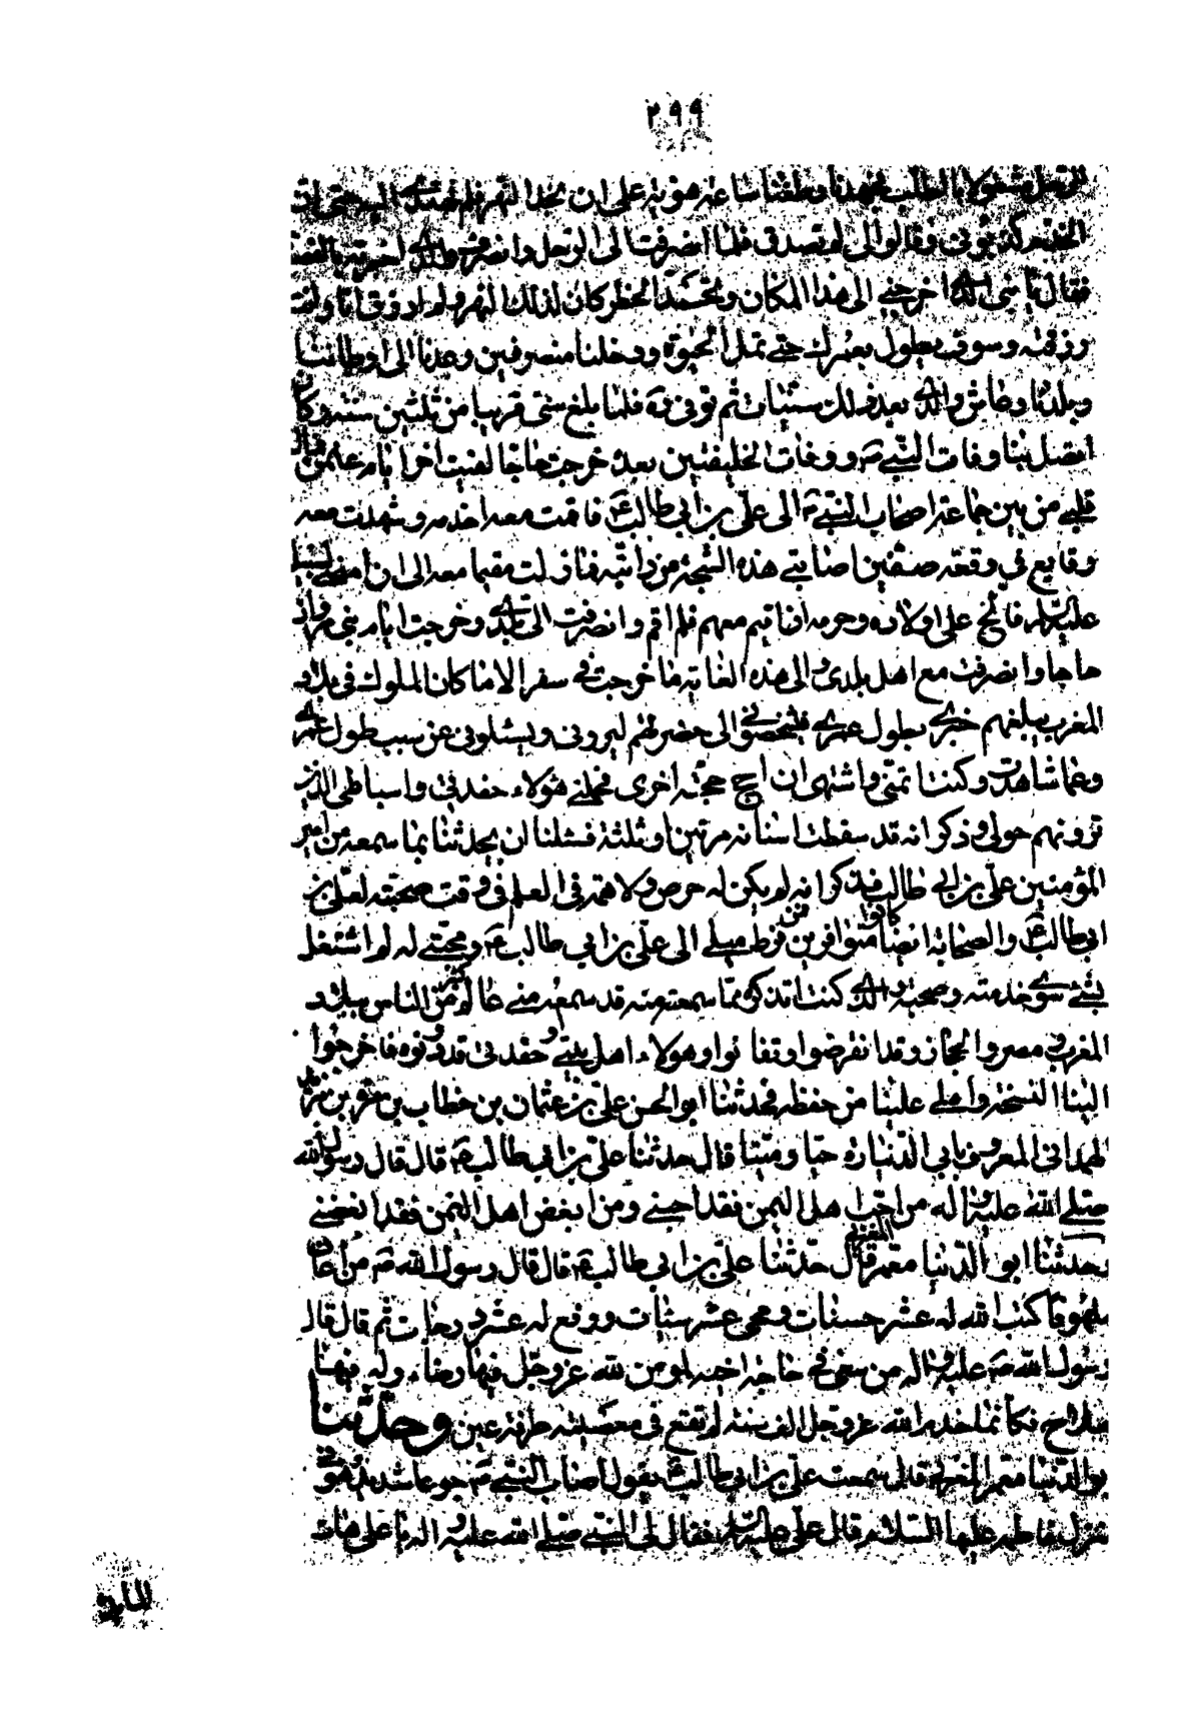 ٢٩٩
الرحل مشغولا بالطلب فجهدنا وطفنا ساعة هوية على ان نجد النهر فلم نهتد اليه حتى ان
الخدم كذبوني وقالوا لي لم تصدق فلما انصرفت الى الرحل وانصرف والدي اخبرته بالقصة
فقال يا بني الذي اخرجني الى هذا المكان وتحمل الخطر كان لذلك النهر ولم ارزق انا وانت
رزقته وسوف يطول عمرك حتى تمل الحيوة ورحلنا منصرفين وعدنا الى اوطاننا
وبلدنا وعاش والدي بعد ذلك سنيات ثم توفى ره فلما بلغ سني قريبا من ثلثين سنة وكان
اتصل بنا وفات النبي ص ووفات الخليفتين بعده خرجت حاجا لقيت اخر ايام عثمن فمال
قلبي من بين جماعة اصحاب النبي ص الى علي بن ابي طالب ع فاقمت معه اخدمه وشهدت معه
وقايع في وقعة صفين اصابتني هذه الشجة من دابته فما زلت مقيما معه الى ان مضى لسبيله
عليه السلام فالح علي اولاده وحرمه ان اقيم معهم فلم اقم وانصرفت الى بلدي وخرجت ايام بني مروان
حاجا وانصرفت مع اهل بلدي والى هذه الغاية ما خرجت في سفر الا ما كان الملوك في بلاد
المغرب يبلغهم خبري بطول عمري فيشخصوني الى حضرتهم ليروني ويسئلوني عن سبب طول عمري
وعما شاهدت وكنت اتمنى واشتهى ان احج حجة اخرى فحملني هؤلاء حفدتي واسباطي الذين
ترونهم حولي وذكر انه قد سقطت اسنانه مرتين او ثلثة فسئلنا ان يحدثنا بما سمعه من امير
المؤمنين علي بن ابي طالب فذكر انه لم يكن له حرص ولا همة في العلم في وقت صحبته لعلي بن
ابي طالب ع والصحابة ايضا كانوا متوافرين فمن فرط ميلي الى علي بن ابي طالب ع ومحبتي له لم اشتغل
بشئ سوى خدمته وصحبته والذي كنت اتذكره مما سمعته منه قد سمعه مني عالم كثير من الناس ببلاد
المغرب ومصر والحجاز وقد انقرضوا وتفانوا وهولاء اهل بيتي وحفدتي قد دونوه فاخرجوا
الينا النسخة واملى علينا من حفظه فحدثنا ابو الحسن علي بن عثمان بن خطاب بن مرة بن مزيد
الهمداني المعروف بابي الدنيا ره حيا وميتا قال حدثنا علي بن ابي طالب ع قال قال رسول الله
صلى الله عليه واله من احب اهل اليمن فقد احبني ومن ابغض اهل اليمن فقد ابغضني
حدثنا ابو الدنيا معمر المغربي قال حدثنا علي بن ابي طالب ع قال قال رسول الله ص من اعان
ملهوفا كتب الله له عشر حسنات ومحى عشر سيئات ورفع له عشر درجات ثم قال قال
رسول الله ص عليه واله من سعى في حاجة اخيه المؤمن لله عز وجل فيها رضاء وله فيها
صلاح فكانما خدم الله عز وجل الف سنة لم يقع في معصيته طرفة عين وحدثنا
ابو الدنيا معمر المغربي قال سمعت علي بن ابي طالب ع يقول اصاب النبي ص جوع شديد وهو في
منزل فاطمه عليها السلام قال علي عليه السلم فقال لي النبي صلى الله عليه واله يا علي هات
المائدة